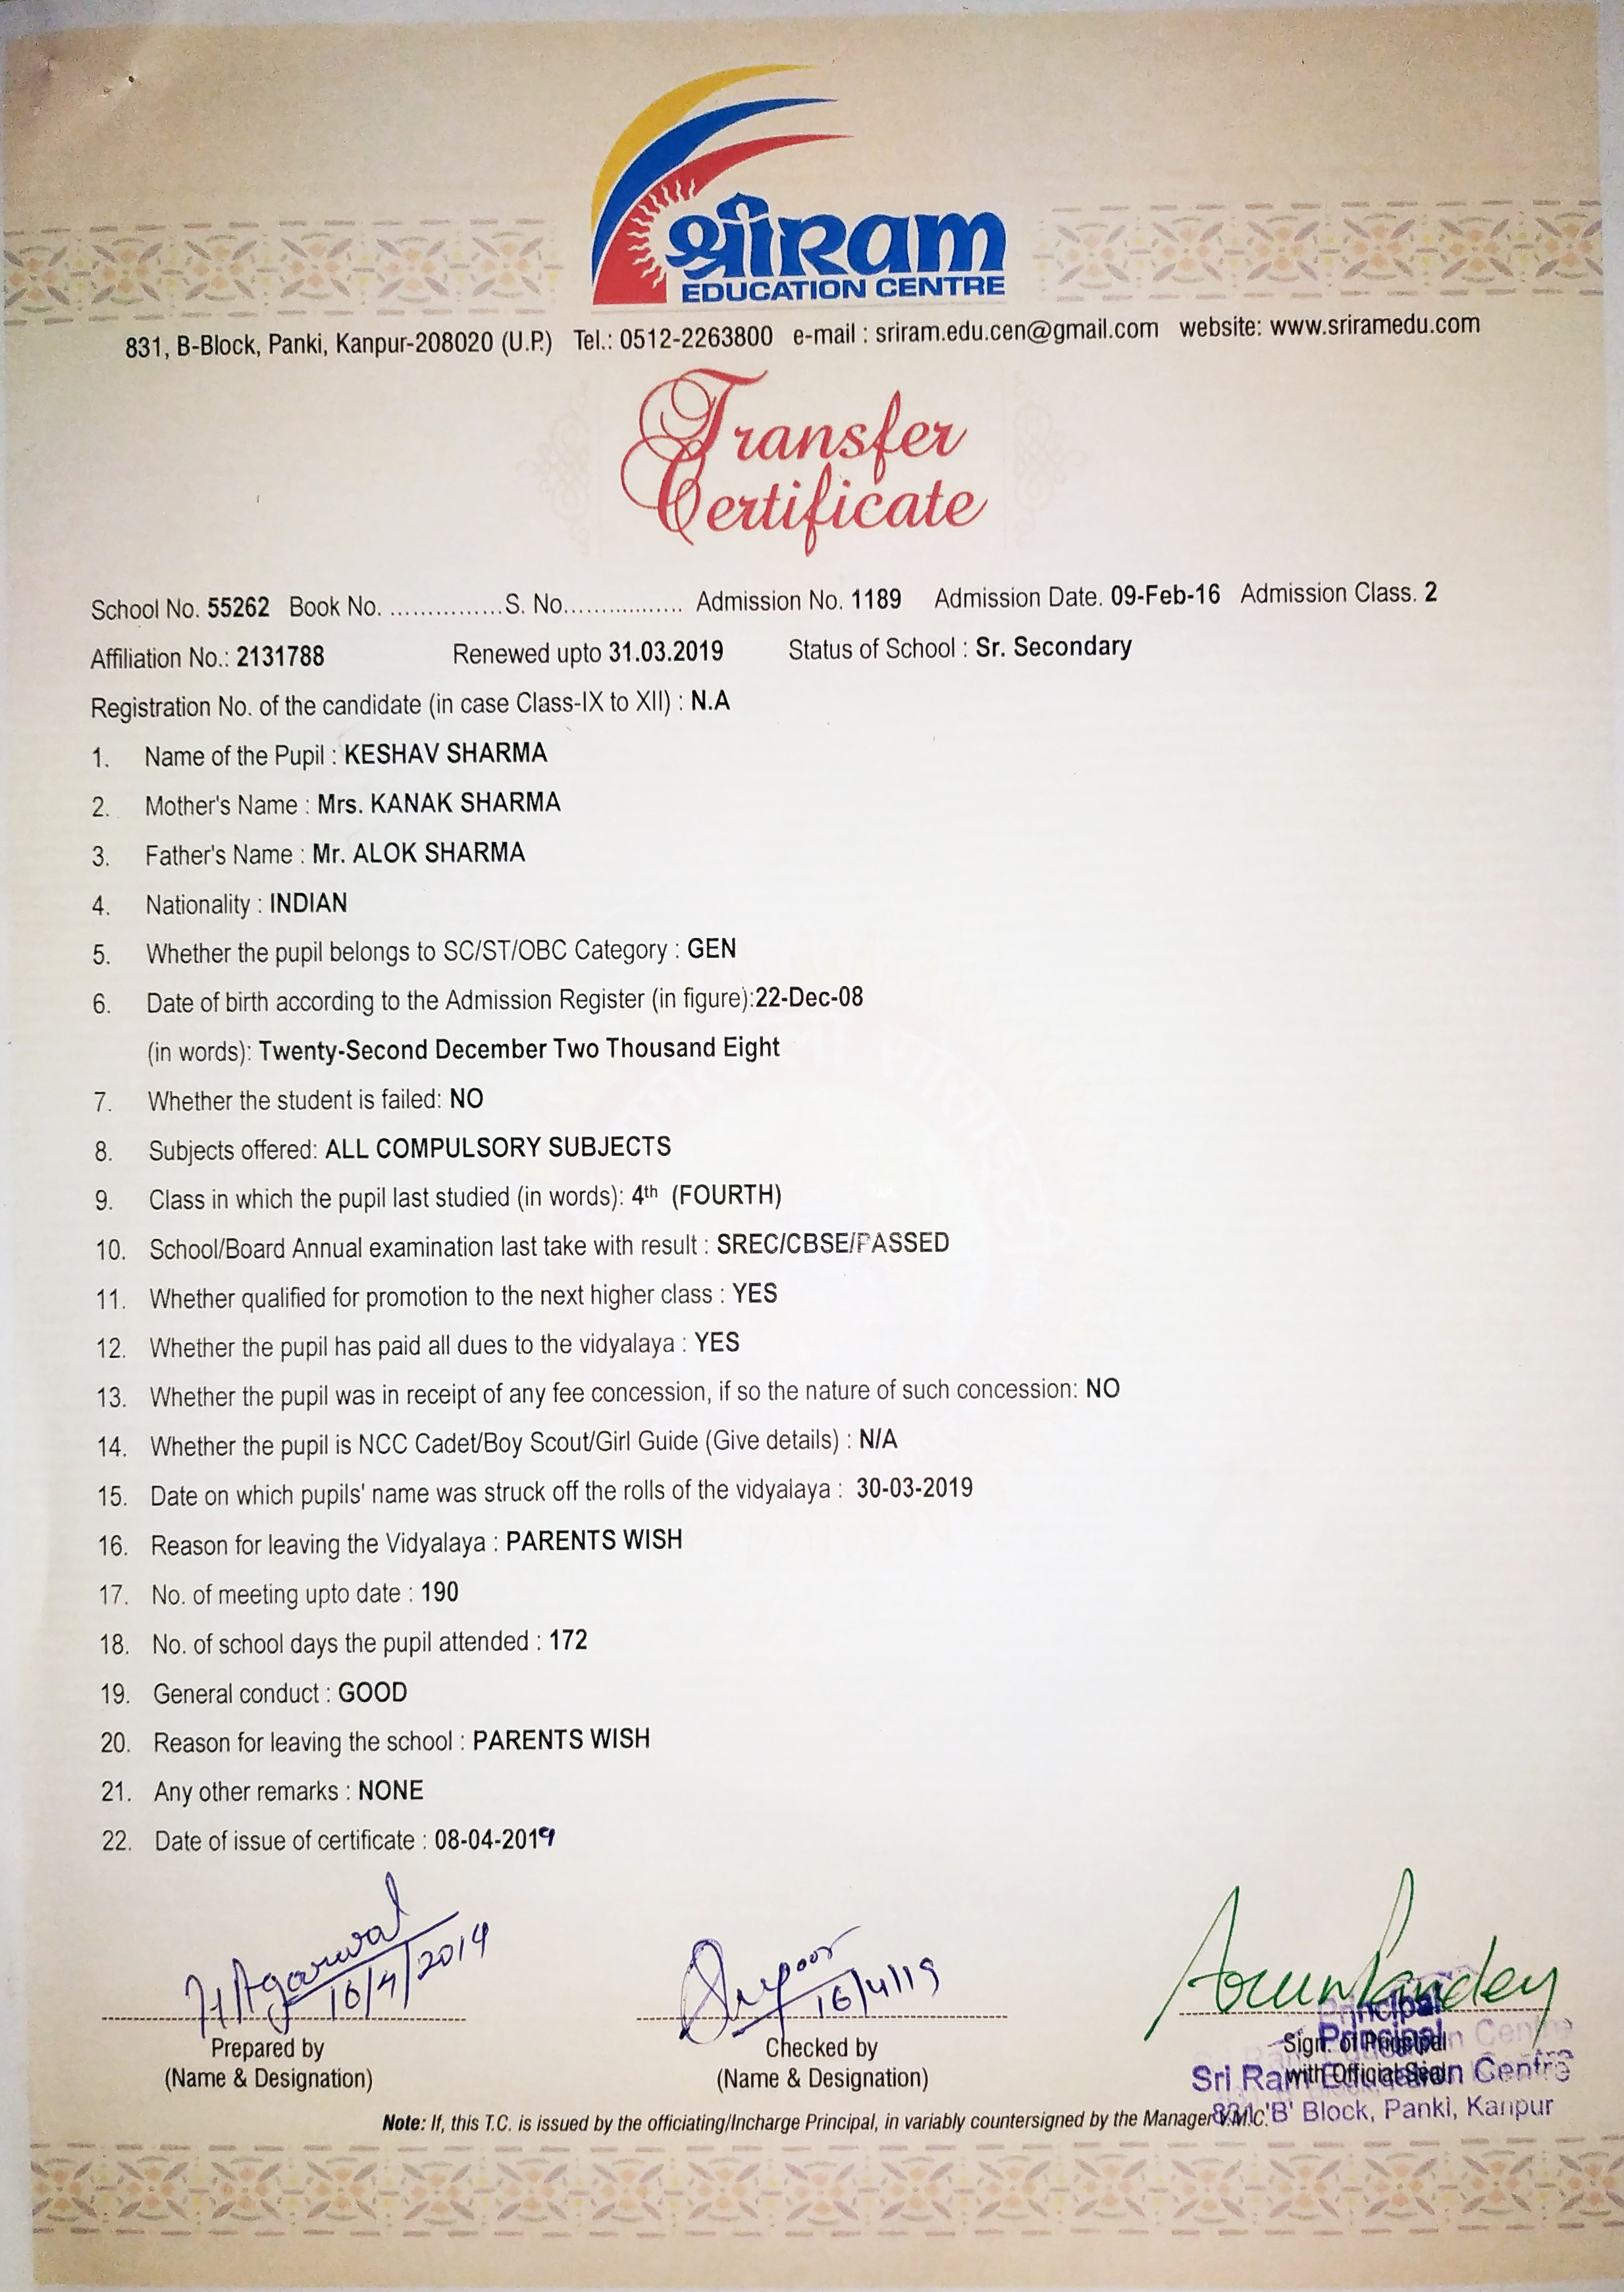 श्रीRam
EDUCATION CENTRE
831, B-Block, Panki, Kanpur-208020 (U.P.) Tel.: 0512-2263800 e-mail : sriram.edu.cen@gmail.com website: www.sriramedu.com
Transfer
Certificate
School No. 55262 Book No. ................S. No................. Admission No. 1189 Admission Date. 09-Feb-16 Admission Class. 2
Affiliation No.: 2131788 Renewed upto 31.03.2019 Status of School : Sr. Secondary
Registration No. of the candidate (in case Class-IX to XII) : N.A
1. Name of the Pupil : KESHAV SHARMA
2. Mother's Name : Mrs. KANAK SHARMA
3. Father's Name : Mr. ALOK SHARMA
4. Nationality : INDIAN
5. Whether the pupil belongs to SC/ST/OBC Category : GEN
6. Date of birth according to the Admission Register (in figure):22-Dec-08
(in words): Twenty-Second December Two Thousand Eight
7. Whether the student is failed: NO
8. Subjects offered: ALL COMPULSORY SUBJECTS
9. Class in which the pupil last studied (in words): 4th (FOURTH)
10. School/Board Annual examination last take with result : SREC/CBSE/PASSED
11. Whether qualified for promotion to the next higher class : YES
12. Whether the pupil has paid all dues to the vidyalaya : YES
13. Whether the pupil was in receipt of any fee concession, if so the nature of such concession: NO
14. Whether the pupil is NCC Cadet/Boy Scout/Girl Guide (Give details) : N/A
15. Date on which pupils' name was struck off the rolls of the vidyalaya : 30-03-2019
16. Reason for leaving the Vidyalaya : PARENTS WISH
17. No. of meeting upto date : 190
18. No. of school days the pupil attended : 172
19. General conduct : GOOD
20. Reason for leaving the school : PARENTS WISH
21. Any other remarks : NONE
22. Date of issue of certificate : 08-04-2019
Agarwal
16/4/2019 16/4/19 Arun Pandey
Prepared by Checked by Sign. of Principal
(Name & Designation) (Name & Designation) with Official Seal
Principal
Sri Ram Education Centre
831 'B' Block, Panki, Kanpur
Note: If, this T.C. is issued by the officiating/Incharge Principal, in variably countersigned by the Manager V.M.C.